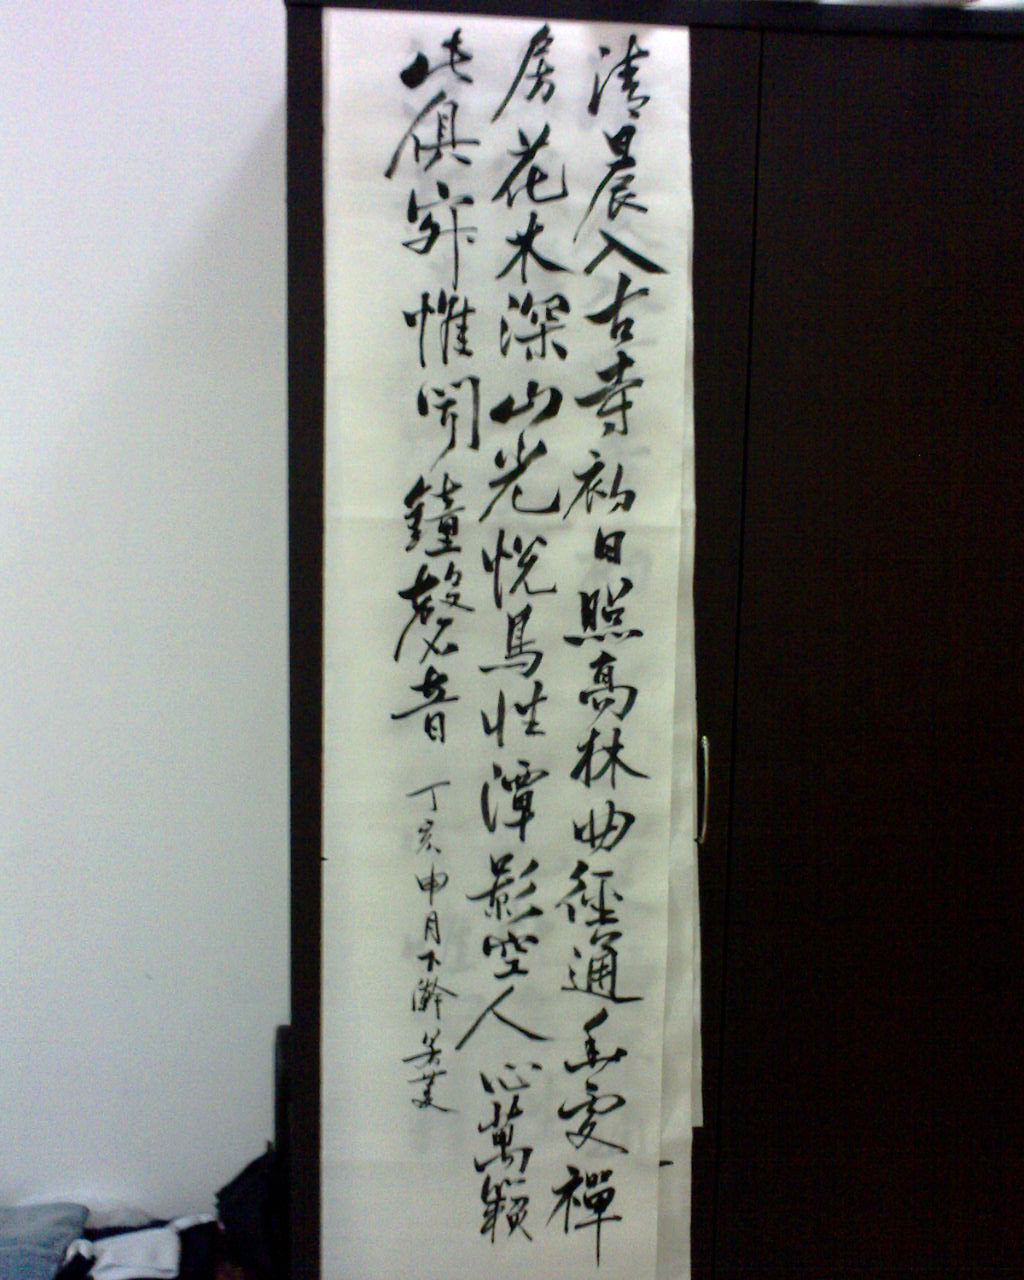 清晨入古寺初日照高林曲徑通幽處禪
房花木深山光悅鳥性潭影空人心萬籟
此俱寂惟聞鐘磬音 丁亥申月下澣